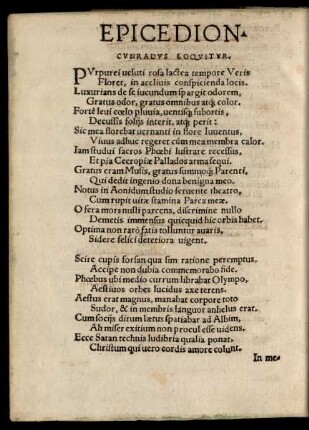 EPICEDION.
CVNRADVS LOQVITVR.
PVrpurei ueluti rosa lactea tempore Veris
Floret, in accliuis conspicienda locis.
Luxurians de se iucundum spargit odorem,
Gratus odor, gratus omnibus atq; color.
Fortè leui cœlo pluuia, uentisq; subortis,
Decussis folijs interit, atq; perit:
Sic mea florebat uernanti in flore Iuuentus,
Viuus adhuc regeret cùm mea membra calor.
Iam studui sacros Phœbi lustrare recessus,
Et pia Cecropiæ Pallados arma sequi.
Gratus eram Musis, gratus summoq; Parenti,
Qui dedit ingenio dona benigna meo.
Notus in Aonidum studio feruente theatro,
Cum rupit uitæ stamina Parca meæ.
O fera mors nulli parcens, discrimine nullo
Demetis immensus quicquid hic orbis habet.
Optima non rarò fatis tolluntur auaris,
Sidere felici deteriora uigent.
Scire cupis forsan qua sim ratione peremptus,
Accipe non dubia commemorabo fide.
Phœbus ubi medio currum librabat Olympo,
Aestiuos orbes lucidus axe terens.
Aestus erat magnus, manabat corpore toto
Sudor, & in membris languor anhelus erat.
Cum socijs dirum lætus spatiabar ad Albim,
Ah miser exitium non procul esse uidens.
Ecce Satan technis ludibria qualia ponat.
Christum qui uero cordis amore colunt.
In me=